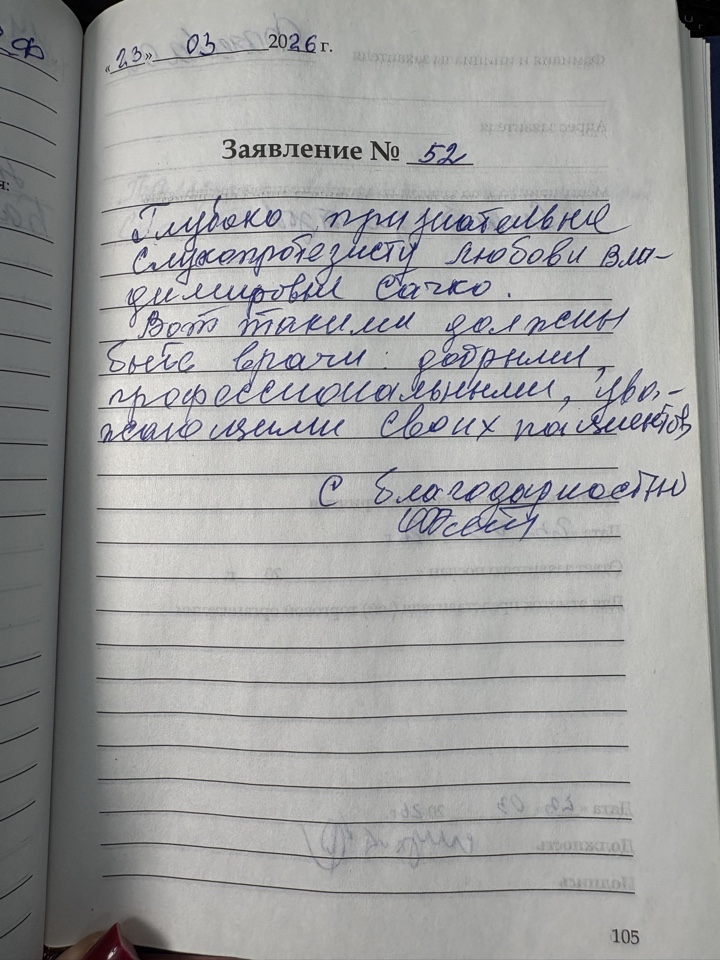 «23» 03 2026 г.
Заявление № 52
Глубоко признательна
слухопротезисту Любови Вла-
димировне Сачко.
Вот такими должны
быть врачи: добрыми,
профессиональными, ува-
жающими своих пациентов
С благодарностью
105